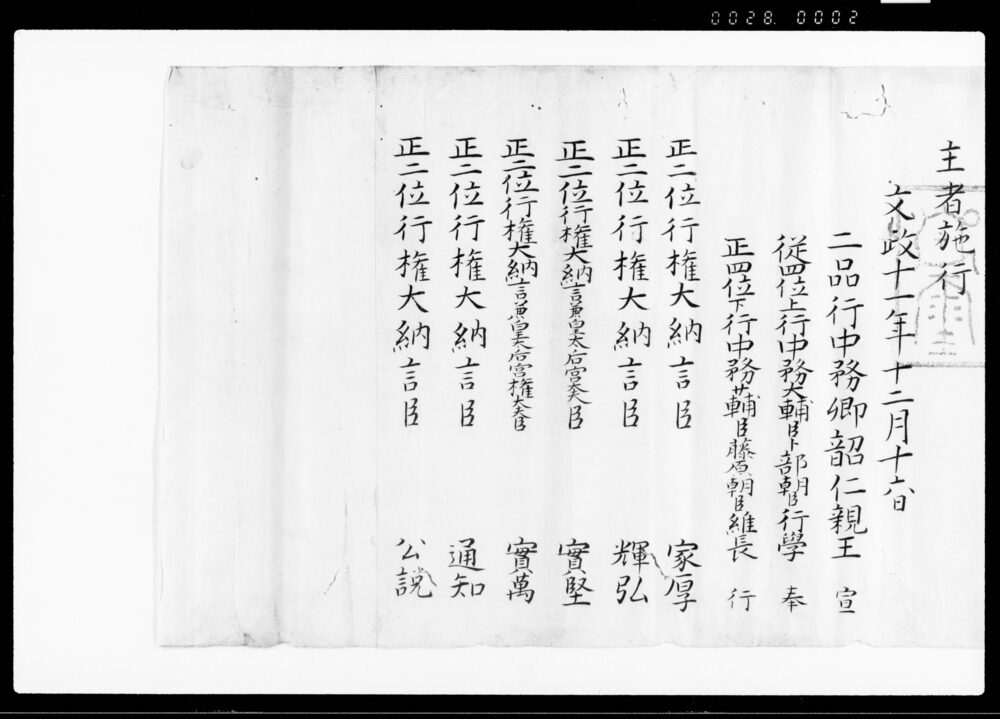 0028. 0002
主者施行
文政十一年十二月十六日
二品行中務卿韶仁親王 宣
従四位上行中務大輔臣卜部朝臣行學 奉
正四位下行中務少輔臣藤原朝臣維長 行
正二位行権大納言臣 家厚
正二位行権大納言臣 輝弘
正二位行権大納言兼皇太后宮大夫臣 實堅
正二位行権大納言兼皇太后宮権大夫臣 實萬
正二位行権大納言臣 通知
正二位行権大納言臣 公説